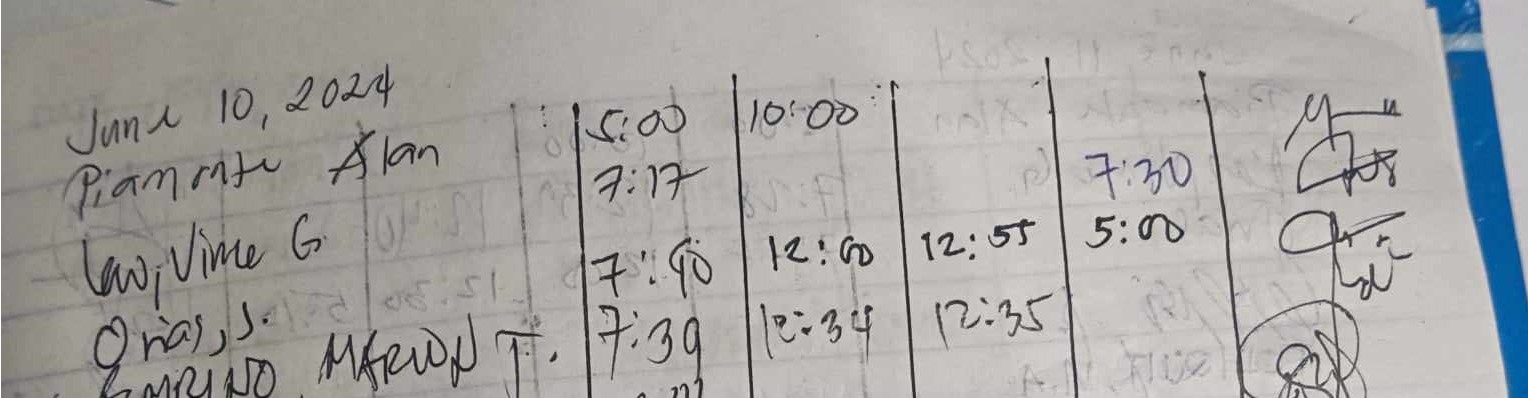 June 10, 2024
Piamonte Alan 5:00 10:00
Law, Vime G. 7:17 7:30
Orias, J. 7:40 12:00 12:55 5:00
MARWON T. 7:39 12:34 12:35